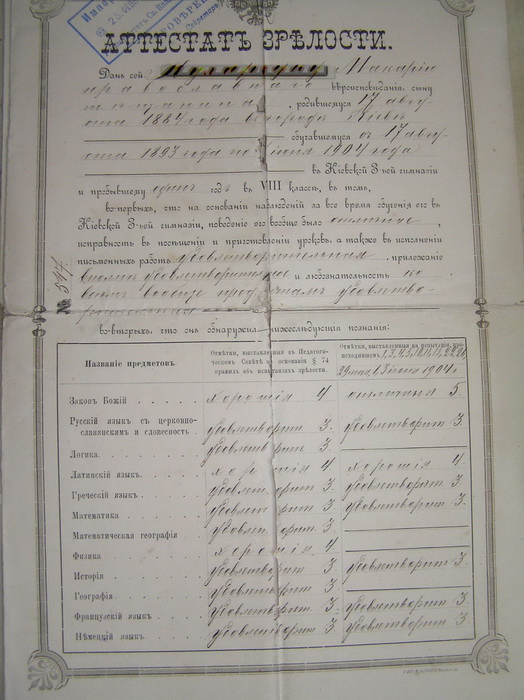 АТТЕСТАТЪ ЗРѢЛОСТИ.
Данъ сей Макарію
православнаго вѣроисповѣданія, сыну
, родившемуся 17 авгу-
ста 1884 года въ городѣ Кіевѣ
обучавшемуся съ 17 авгу-
ста 1893 года по іюня 1904 года
въ Кіевской 3-ьей гимназіи
и пробывшему одинъ годъ въ VIII классѣ, въ томъ,
во-первыхъ, что на основаніи наблюденій за все время обученія его въ
Кіевской 3-ьей гимназіи, поведеніе его вообще было отличное,
исправность въ посѣщеніи и приготовленіи уроковъ, а также въ исполненіи
письменныхъ работъ удовлетворительная, прилежаніе
вполнѣ удовлетворительное и любознательность ко
всѣмъ вообще предметамъ удовлетво-
рительная
№ 597.
во-вторыхъ, что онъ обнаружилъ нижеслѣдующія познанія:
Названіе предметовъ.
Отмѣтки, выставленныя въ Педагоги-
ческомъ Совѣтѣ на основаніи § 74
правилъ объ испытаніяхъ зрѣлости.
Отмѣтки, выставленныя на испытаніи, про-
исходившемъ
29 мая, 1904 г.
Законъ Божій . . . . . хорошія 4 отличныя 5
Русскій языкъ съ церковно-
славянскимъ и словесность. удовлетворит 3. удовлетворит 3.
Логика . . . . . удовлетворит 3.
Латинскій языкъ. . . . . хорошія 4 хорошія 4.
Греческій языкъ . . . . . удовлетворит 3. удовлетворит 3.
Математика . . . . . удовлетворит 3. удовлетворит 3.
Математическая географія удовлет 3.
Физика . . . . . хорошія 4.
Исторія . . . . . удовлетворит 3. удовлетворит 3.
Географія . . . . . удовлетворит 3.
Французскій языкъ . . . . удовлетворит 3. удовлетворит 3.
Нѣмецкій языкъ. . . . . удовлетворит 3. удовлетворит 3.